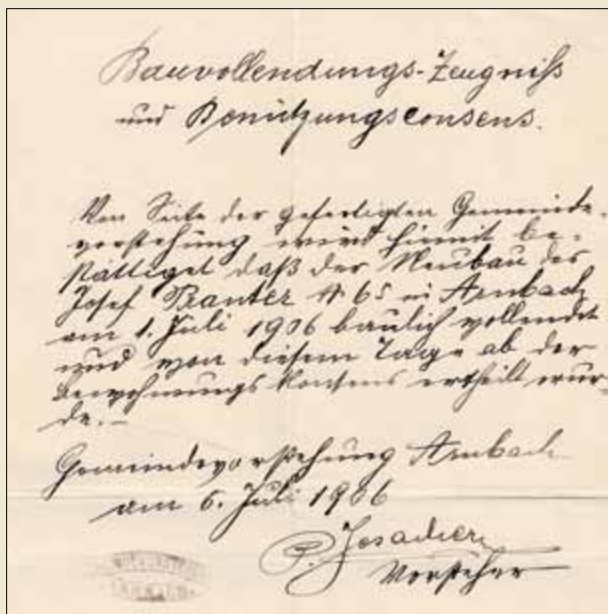 Bauvollendungs-Zeugniß
und Benützungsconsens.
Von Seite der gefertigten Gemeinde-
vorstehung wird hiemit be-
stättiget daß der Neubau des
Josef Pranter # 65 in Arnbach
am 1. Juli 1906 baulich vollendet
und von diesem Tage ab der
Bewohnungs Konsens ertheilt wur-
de.-
Gemeindevorstehung Arnbach
am 6. Juli 1906
P. Josacher
Vorsteher